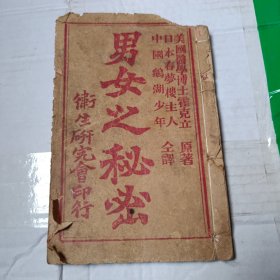 美國醫學博士霍克立 原著
日本春夢樓主人
中國鵝湖少年 仝譯
男女之秘密
衛生研究會印行